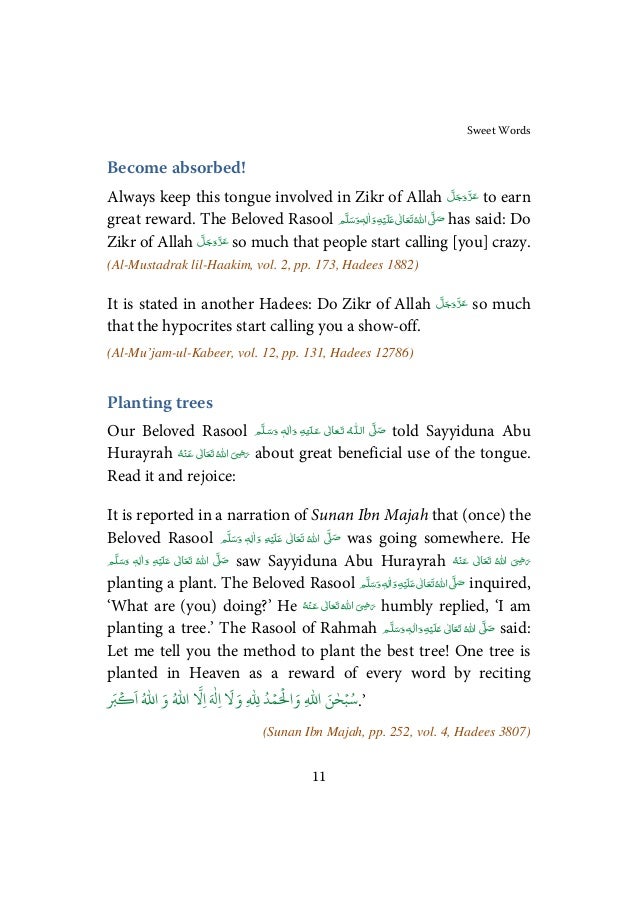 Sweet Words
Become absorbed!
Always keep this tongue involved in Zikr of Allah عَزَّوَجَلَّ to earn
great reward. The Beloved Rasool صَلَّى اللهُ تَعَالٰى عَلَيْهِ وَاٰلِهٖ وَسَلَّم has said: Do
Zikr of Allah عَزَّوَجَلَّ so much that people start calling [you] crazy.
(Al-Mustadrak lil-Haakim, vol. 2, pp. 173, Hadees 1882)
It is stated in another Hadees: Do Zikr of Allah عَزَّوَجَلَّ so much
that the hypocrites start calling you a show-off.
(Al-Mu’jam-ul-Kabeer, vol. 12, pp. 131, Hadees 12786)
Planting trees
Our Beloved Rasool صَلَّى اللهُ تَعَالٰى عَلَيْهِ وَاٰلِهٖ وَسَلَّم told Sayyiduna Abu
Hurayrah رَضِىَ اللهُ تَعَالٰى عَنْهُ about great beneficial use of the tongue.
Read it and rejoice:
It is reported in a narration of Sunan Ibn Majah that (once) the
Beloved Rasool صَلَّى اللهُ تَعَالٰى عَلَيْهِ وَاٰلِهٖ وَسَلَّم was going somewhere. He
صَلَّى اللهُ تَعَالٰى عَلَيْهِ وَاٰلِهٖ وَسَلَّم saw Sayyiduna Abu Hurayrah رَضِىَ اللهُ تَعَالٰى عَنْهُ
planting a plant. The Beloved Rasool صَلَّى اللهُ تَعَالٰى عَلَيْهِ وَاٰلِهٖ وَسَلَّم inquired,
‘What are (you) doing?’ He رَضِىَ اللهُ تَعَالٰى عَنْهُ humbly replied, ‘I am
planting a tree.’ The Rasool of Rahmah صَلَّى اللهُ تَعَالٰى عَلَيْهِ وَاٰلِهٖ وَسَلَّم said:
Let me tell you the method to plant the best tree! One tree is
planted in Heaven as a reward of every word by reciting
سُبْحٰنَ اللهِ وَ الْحَمْدُ لِلّٰهِ وَ لَآ اِلٰهَ اِلَّا اللهُ وَ اللهُ اَكْبَر.’
(Sunan Ibn Majah, pp. 252, vol. 4, Hadees 3807)
11